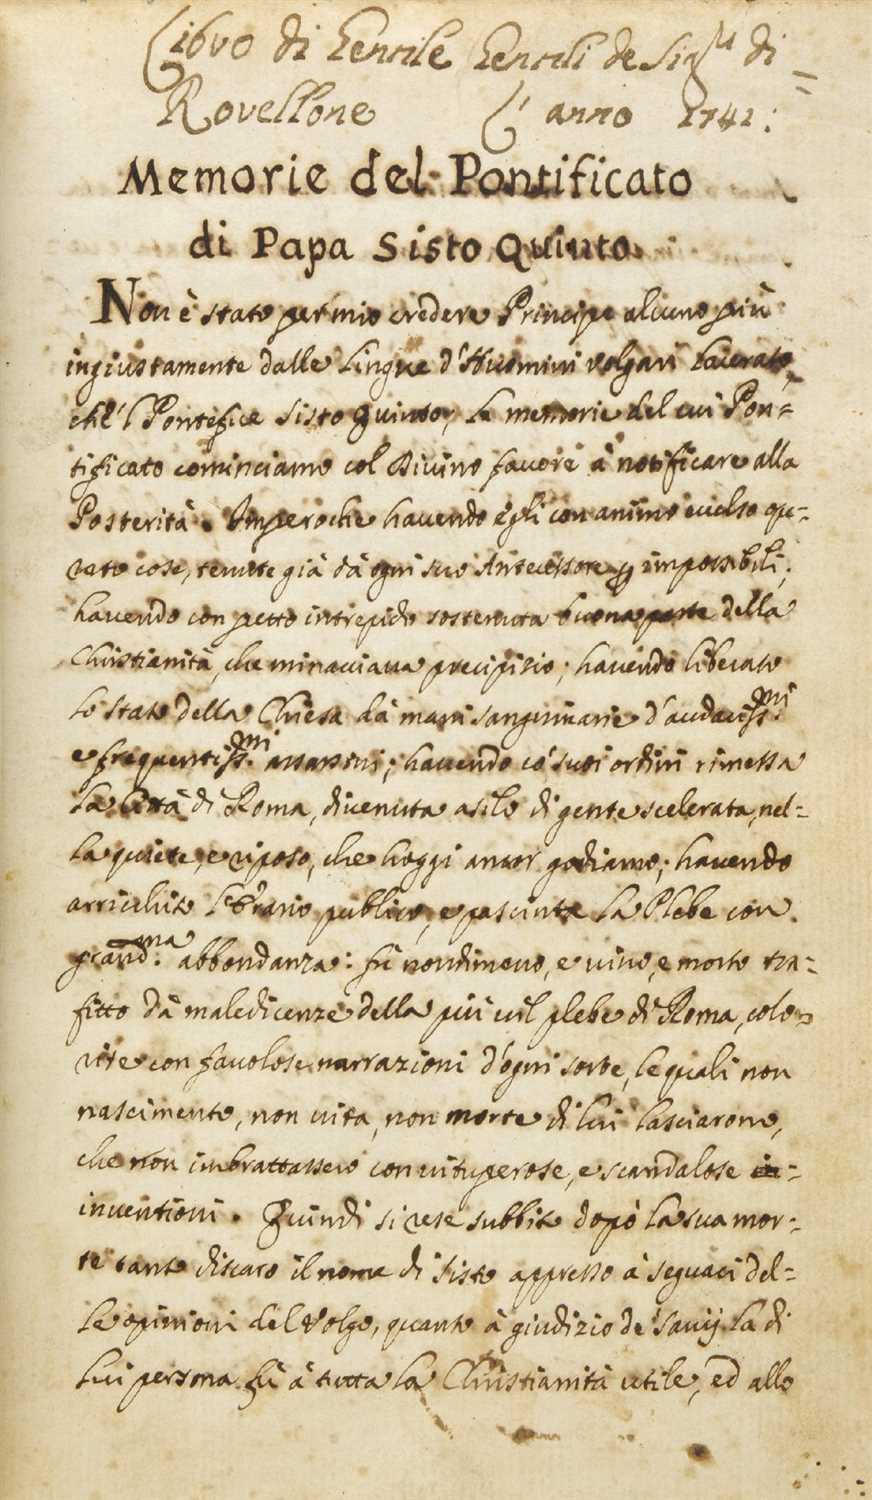 Libro di Gentile Gentili de Sig.ri di =
Rovellone L' anno 1741:
Memorie del Pontificato
di Papa Sisto Quinto.
Non è stato per mio credere Principe alcuno più
ingiustamente dalle Lingue d'Huomini volgari lacerato,
che'l Pontefice Sisto Quinto, le memorie del cui Pon=
tificato cominciamo col Divino favore à notificare alla
Posterità. Imperoche havendo egli con animo eccelso ope=
rate cose, tenute già dà ogni suo Antecessore p impossibili;
havendo con petto intrepido sostenuta buona parte della
Christianità, che minacciava precipizio; havendo liberato
lo stato della Chiesa dà mani sanguinarie d'audaciss.mi
e frequentiss.mi assassini; havendo co' suoi ordini rimessa
la Città di Roma, divenuta asilo di gente scelerata, nel=
la quiete, e riposo, che hoggi ancor godiamo; havendo
arricchito l'Erario publico, e pasciuta la Plebe con
grand.ma abbondanza: fù nondimeno, e vivo, e morto tra=
fitto dà maledicenze della più vil plebe di Roma, colo=
rite con favolose narrazioni d'ogni sorte, le quali non
nascimento, non vita, non morte di lui lasciarono,
che non imbrattassero con vituperose, e scandalose in=
inventioni. Quindi si rese subbito dopò la sua mor=
te tanto discaro il nome di Sisto appresso à seguaci del=
le opinioni del Volgo, quanto à giudizio de' Savij la di
lui persona fù à tutta la Christianità utile, ed allo